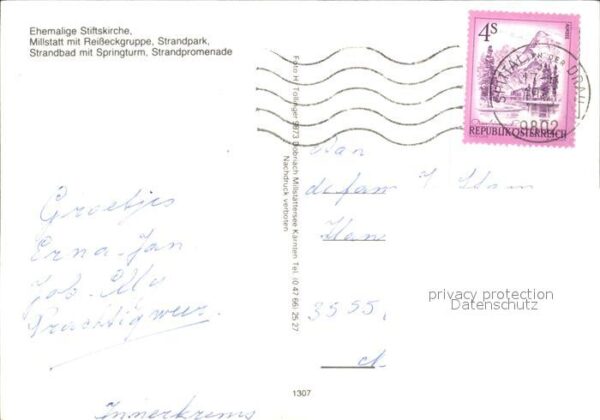 Ehemalige Stiftskirche,
Millstatt mit Reißeckgruppe, Strandpark,
Strandbad mit Springturm, Strandpromenade
4S
REPUBLIK ÖSTERREICH
SPITTAL AN DER DRAU
9802
Foto H. Tollinger 9873 Döbriach Millstättersee Kärnten Tel. (0 47 66) 25 27
Nachdruck verboten
Groetjes
Erna-Jan.
Job-
Prachtig weer.
Innerkrems
Aan
de fam
3555
privacy protection
Datenschutz
1307